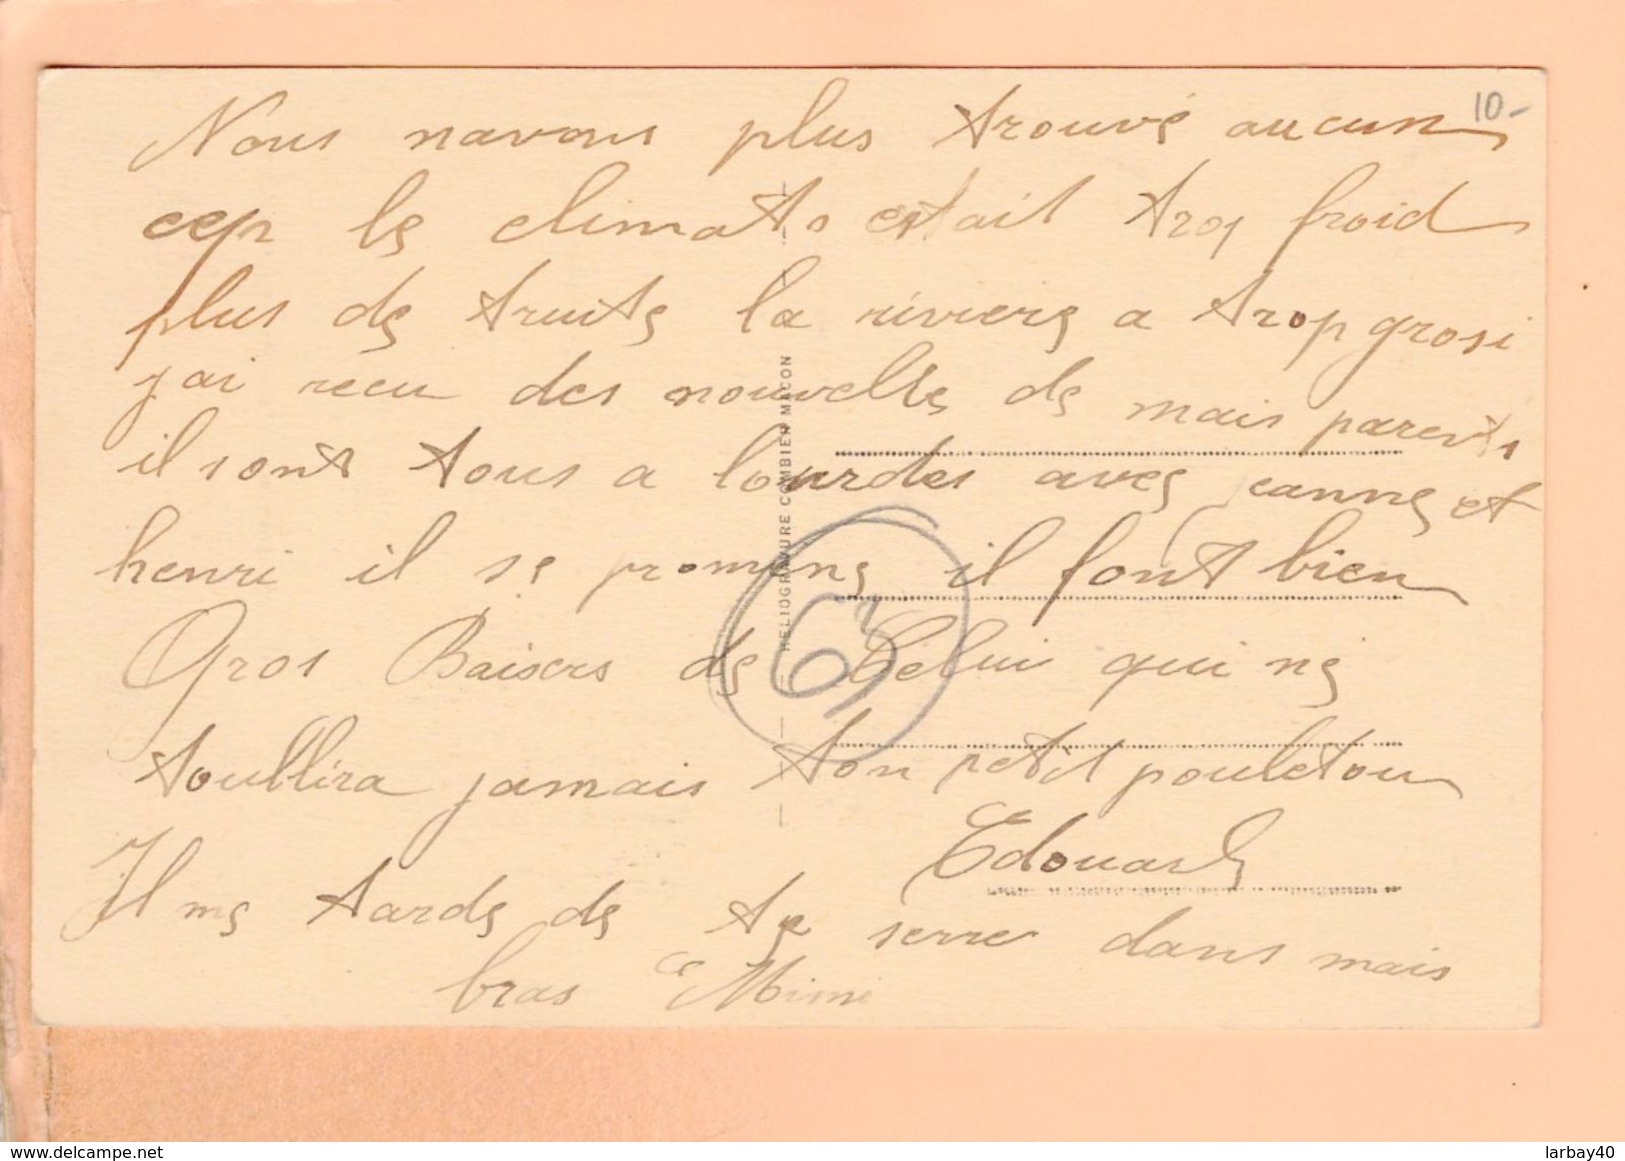 Nous navons plus trouvé aucun
cep le climats etait trop froid
plus de truite la riviere a trop grosi
jai recu des nouvelle de mais parents
il sont tous a lourdes avec jeanne et
henri il se promene il font bien
Gros Baisers de Celui qui ne
toublira jamais ton petit pouletou
Edouard
Il me tarde de te serrer dans mais
bras Mimi
10-
HELIOGRAVURE COMBIER MACON
delcampe.net
larbay40